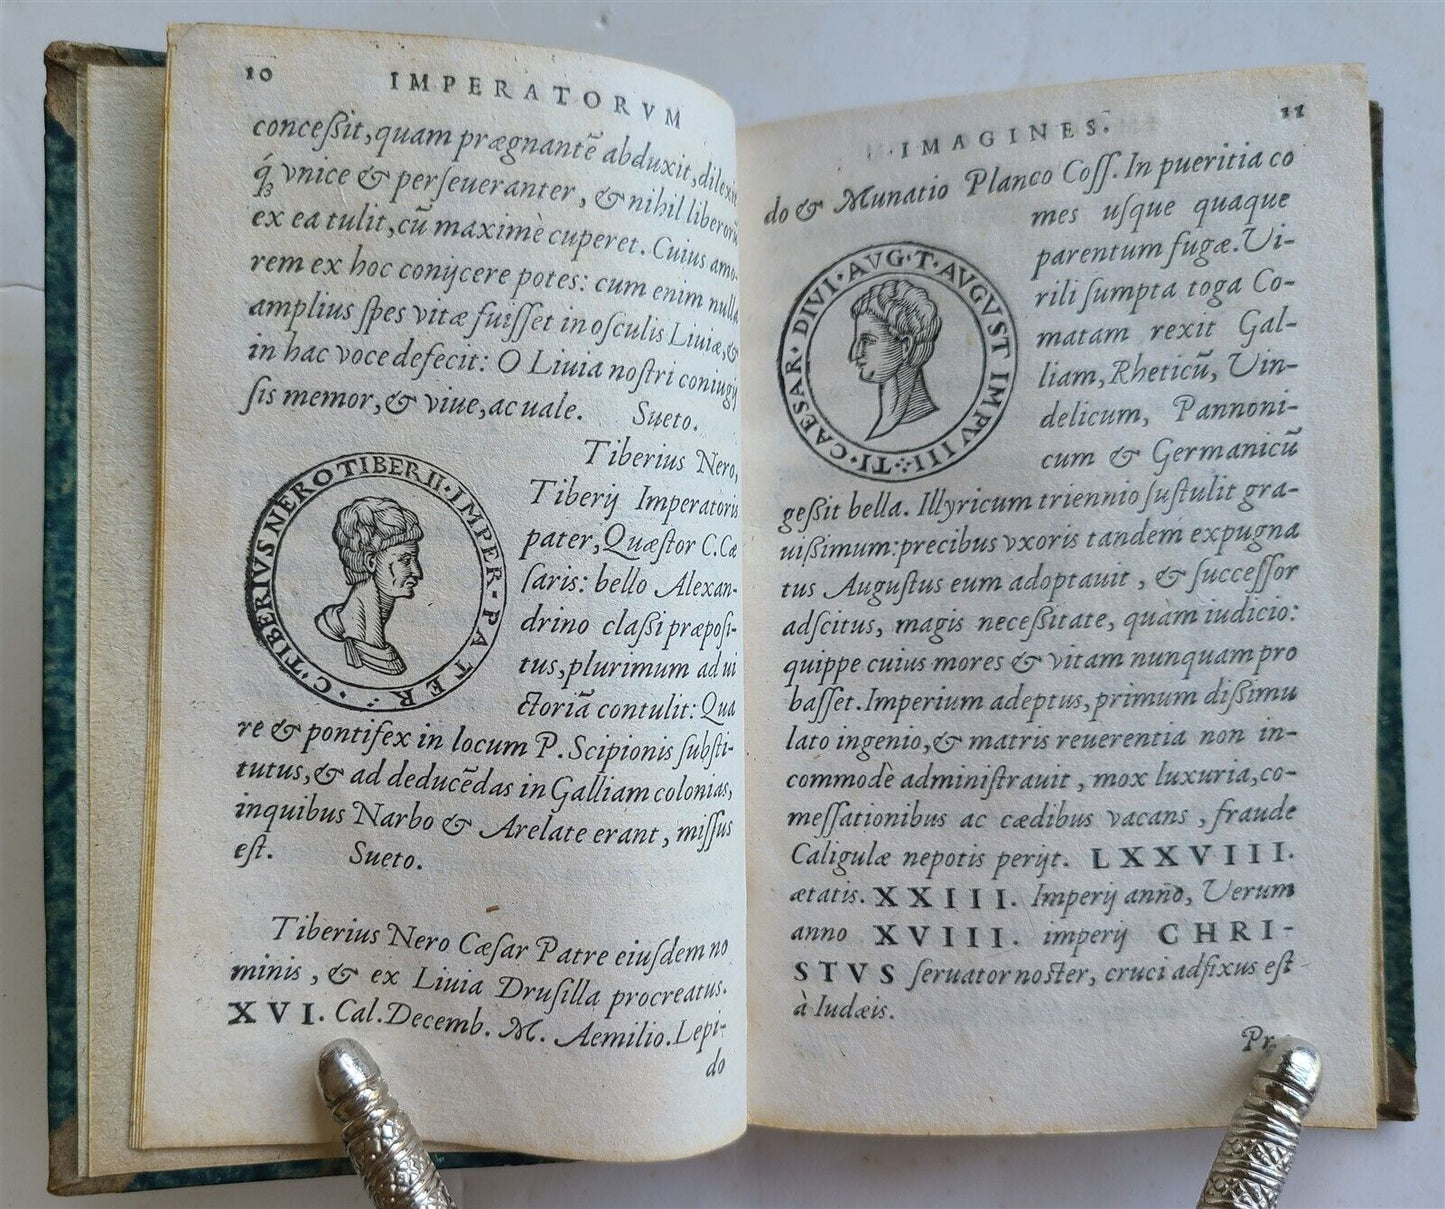 10
IMPERATORVM
conceßit, quam prægnantē abduxit, dilexit
q́ꝫ vnice & perſeueranter, & nihil liberorū
ex ea tulit, cū maximè cuperet. Cuius amo-
rem ex hoc conijcere potes: cum enim nulla
amplius ſpes vitæ fuiſſet in oſculis Liuiæ, &
in hac voce defecit: O Liuia noſtri coniugij
ſis memor, & viue, ac uale. Sueto.
C · TIBERIVS NERO TIBERII · IMPER · PATER
Tiberius Nero,
Tiberij Imperatoris
pater, Quæſtor C. Cæ
ſaris: bello Alexan-
drino claßi præpoſi-
tus, plurimum ad ui
ctoriā contulit: Qua
re & pontifex in locum P. Scipionis ſubſti-
tutus, & ad deducēdas in Galliam colonias,
inquibus Narbo & Arelate erant, miſſus
eſt. Sueto.
Tiberius Nero Cæſar Patre eiuſdem no
minis, & ex Liuia Druſilla procreatus.
XVI. Cal. Decemb. M. Aemilio. Lepi-
do
11
IMAGINES.
do & Munatio Planco Coſſ. In pueritia co
mes uſque quaque
parentum fugæ. Ui-
rili ſumpta toga Co-
matam rexit Gal-
liam, Rheticū, Uin-
delicum, Pannoni-
cum & Germanicū
TI · CAESAR · DIVI · AVG · T · AVGVST IMP VIII
geßit bella. Illyricum triennio ſuſtulit gra-
uißimum: precibus vxoris tandem expugna
tus Auguſtus eum adoptauit, & ſucceſſor
adſcitus, magis neceßitate, quàm iudicio:
quippe cuius mores & vitam nunquam pro
baſſet. Imperium adeptus, primum dißimu
lato ingenio, & matris reuerentia non in-
commodè adminiſtrauit, mox luxuria, co-
meſſationibus ac cædibus vacans, fraude
Caligulæ nepotis perijt. LXXVIII.
ætatis. XXIII. Imperij anno, Verum
anno XVIII. imperij CHRI-
STVS ſeruator noſter, cruci adfixus eſt
à Iudæis.